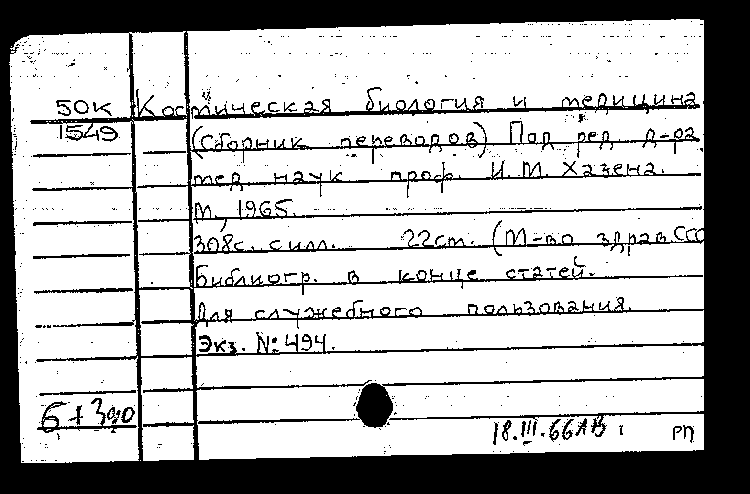 50К Космическая биология и медицина
1549 (Сборник переводов) Под ред. д-ра
мед. наук проф. И.М. Хазена.
М., 1965.
308с. с илл. 22см. (М-во здрав. ССС
Библиогр. в конце статей.
Для служебного пользования.
Экз. №:494.
18.III.66 РП